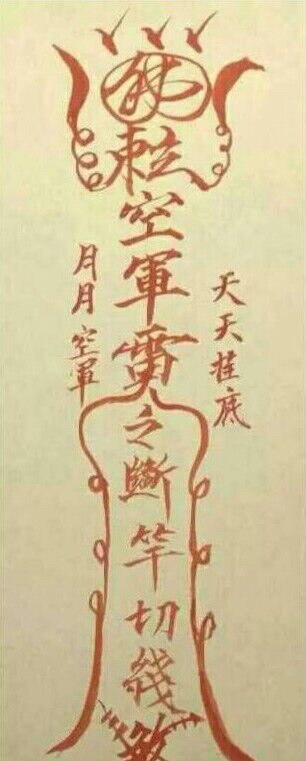 天天挂底
佛敕空軍之斷竿切綫
月月空軍